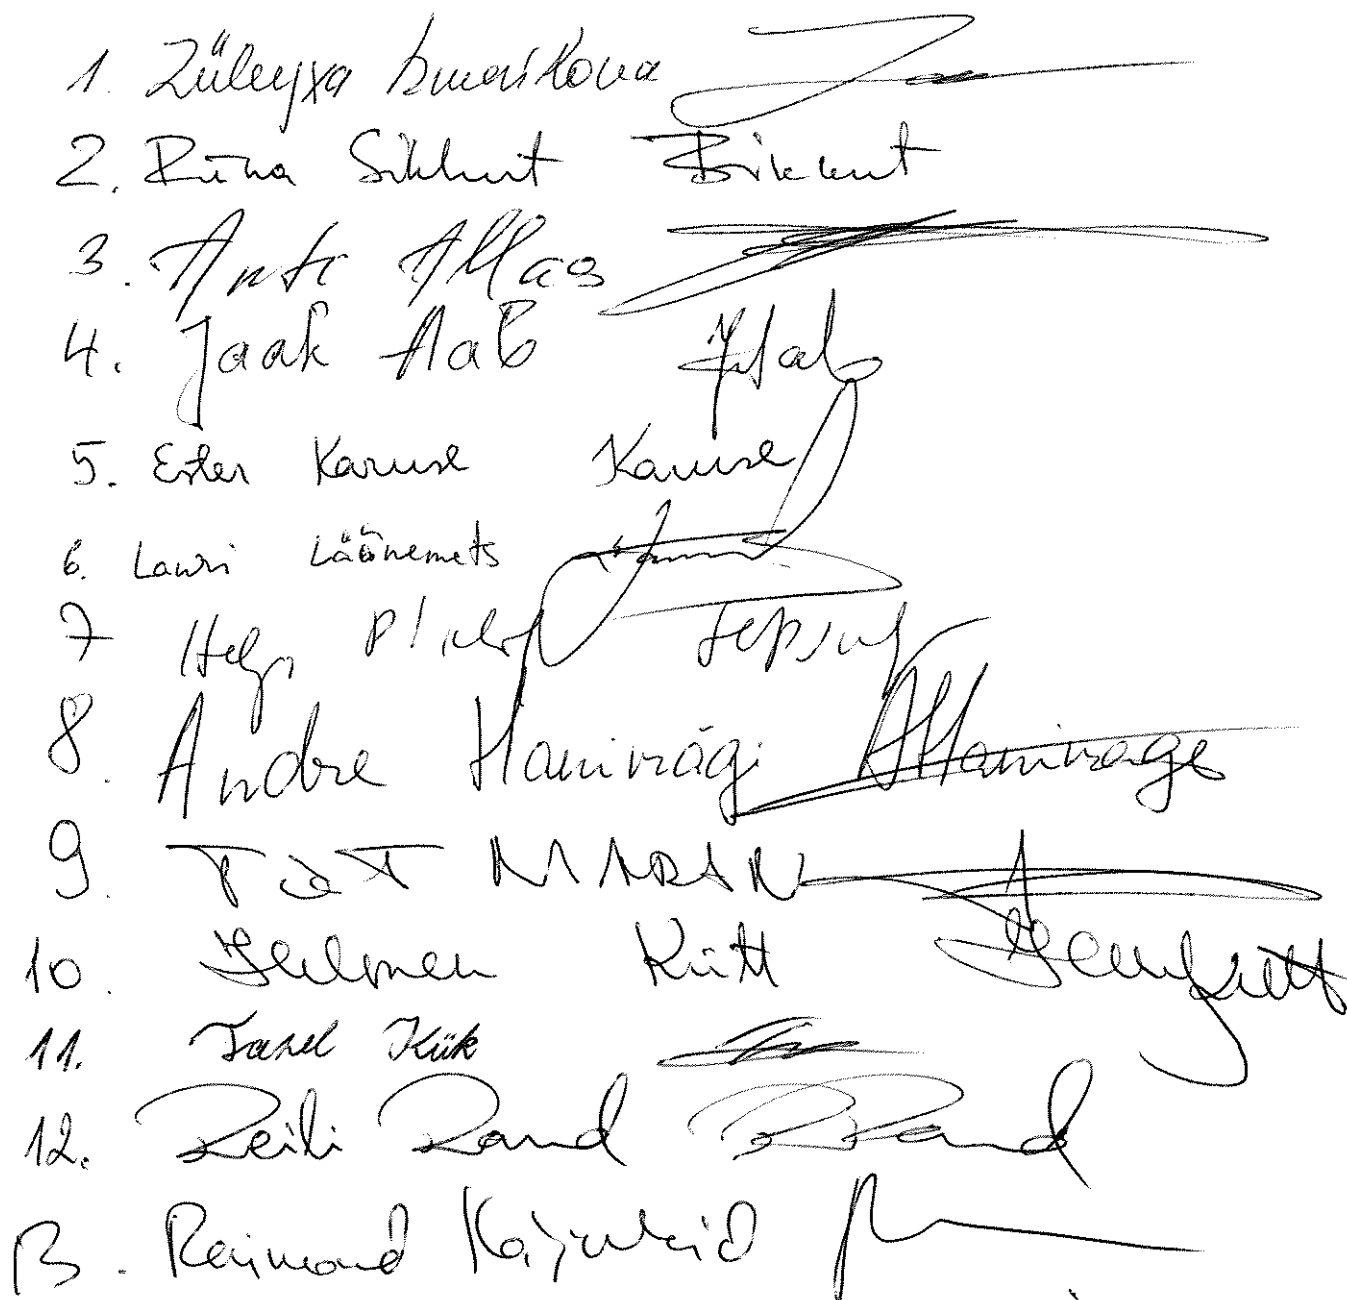 1. Züleyxa Izmailova
2. Riina Sikkut Sikkut
3. Anti Allas
4. Jaak Aab JAab
5. Ester Karuse Karuse
6. Lauri Läänemets
7 Helja
8. Andre Hanimägi AHanimägi
9. TiiT MARAN
10. Helmen Kütt
11. Tanel Kiik
12. Reili Rand RRand
13. Raimond Kaljulaid